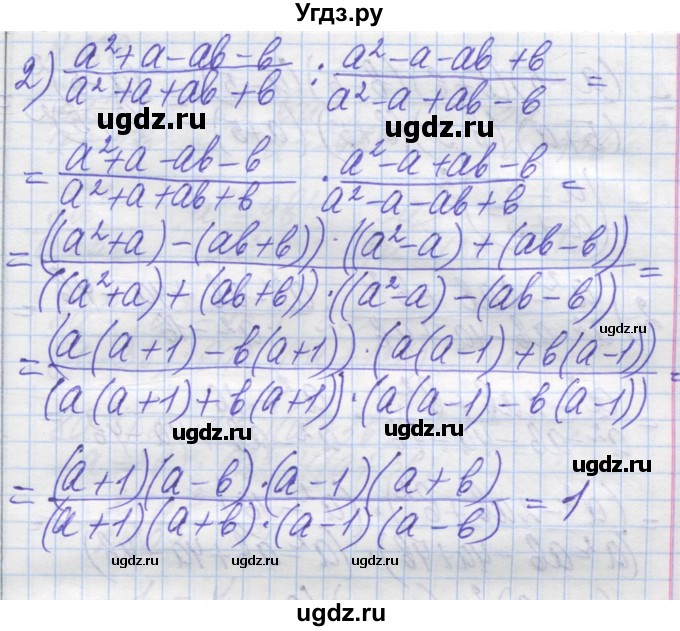 Угдз.ру
2) (a²+a-ab-b)/(a²+a+ab+b) : (a²-a-ab+b)/(a²-a+ab-b) =
ugdz.ru ugdz.ru
= (a²+a-ab-b)/(a²+a+ab+b) · (a²-a+ab-b)/(a²-a-ab+b) =
= ((a²+a)-(ab+b))·((a²-a)+(ab-b))/((a²+a)+(ab+b))·((a²-a)-(ab-b)) =
ugdz.ru
= (a(a+1)-b(a+1))·(a(a-1)+b(a-1))/(a(a+1)+b(a+1))·(a(a-1)-b(a-1)) =
ugdz.ru ugdz.ru
= (a+1)(a-b)·(a-1)(a+b)/(a+1)(a+b)·(a-1)(a-b) = 1
ugdz.ru
ugdz.ru ugdz.ru ugdz.ru ugdz.ru
ugdz.ru